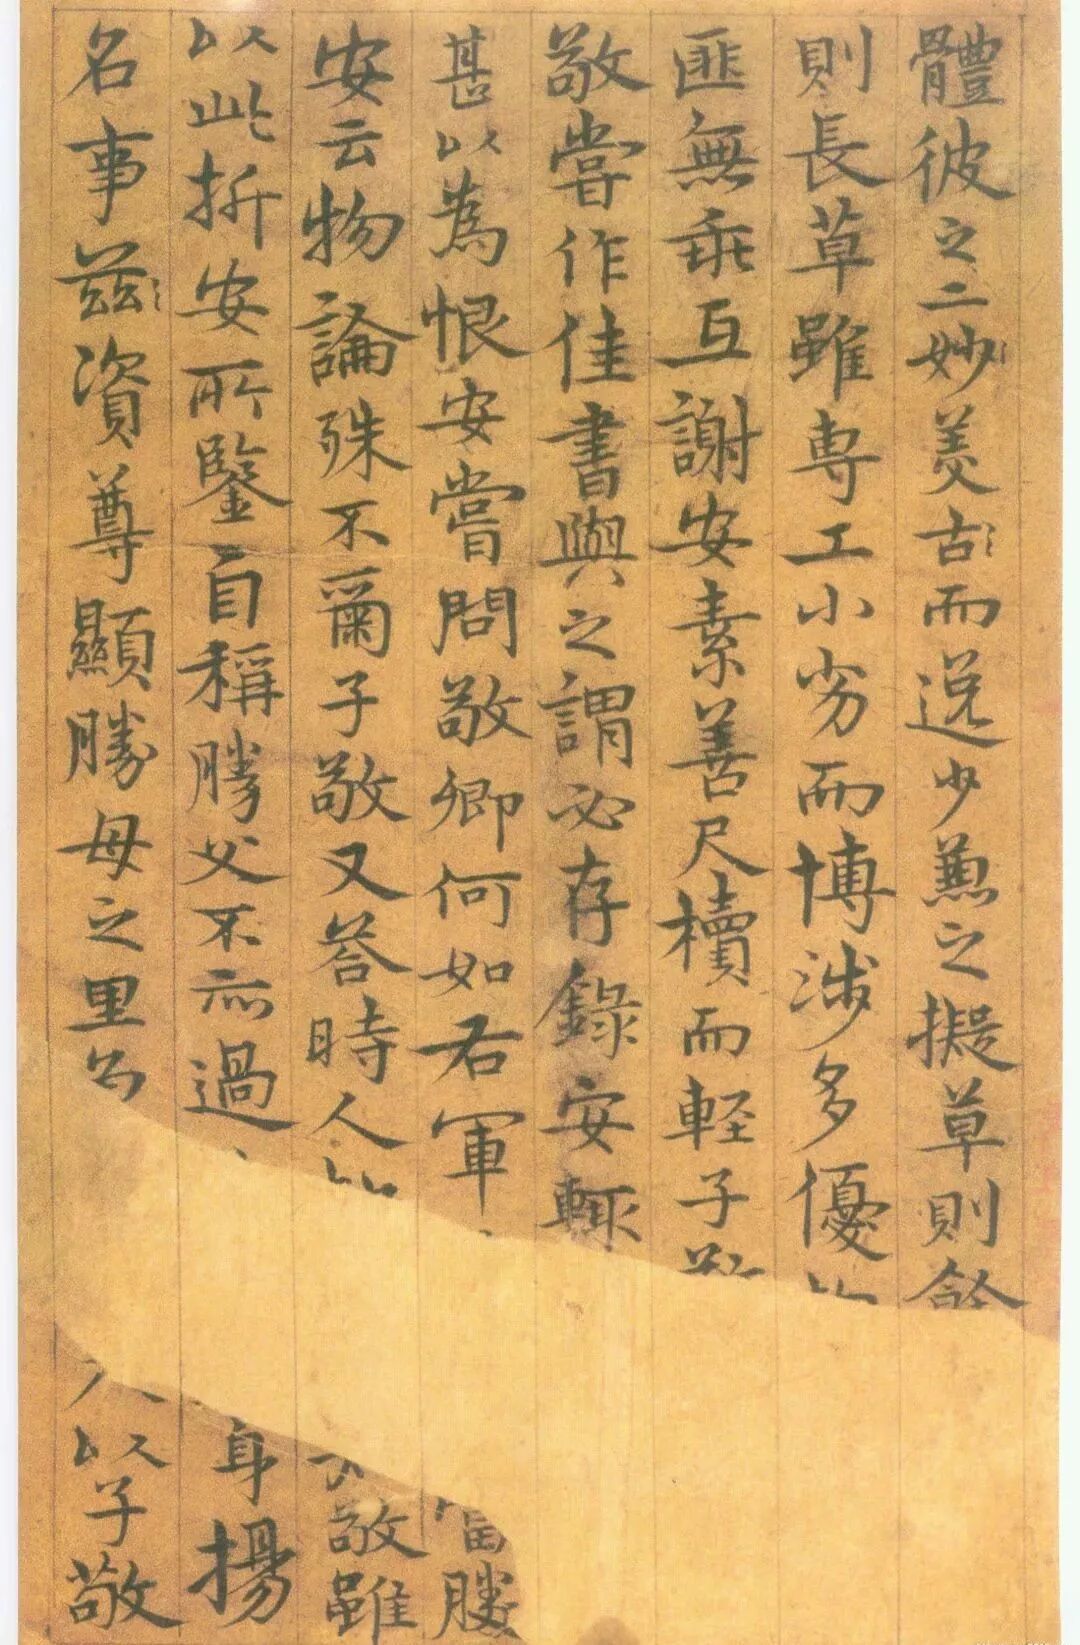 體彼之二妙美古而逸少兼之擬草則餘
則長草雖專工小劣而博涉多優
匪無乖互謝安素善尺牘而軽子
敬嘗作佳書與之謂必存錄安輒
甚以為恨安嘗問敬卿何如右軍 當勝
安云物論殊不爾子敬又荅時人 敬雖
以此折安所鑒自稱勝父不亦過 身揚
名事茲資尊顯勝母之里 以子敬